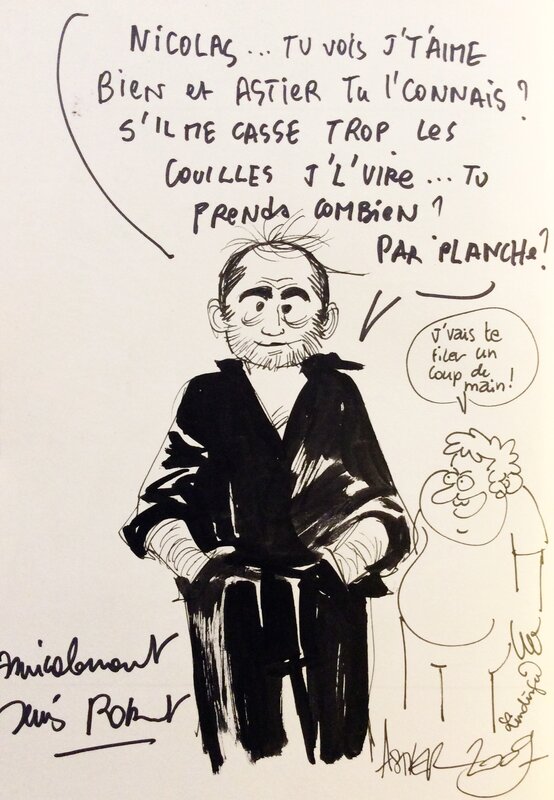 NICOLAS... TU VOIS J'T'AIME
BIEN et ASTIER TU l'CONNAIS?
S'IL ME CASSE TROP LES
COUILLES J'L'VIRE... TU
PRENDS COMBIEN?
PAR PLANCHE?
J'vais te
filer un
coup de
main!
Amicalement
Denis Robert
Lindingre
ASTIER 2009